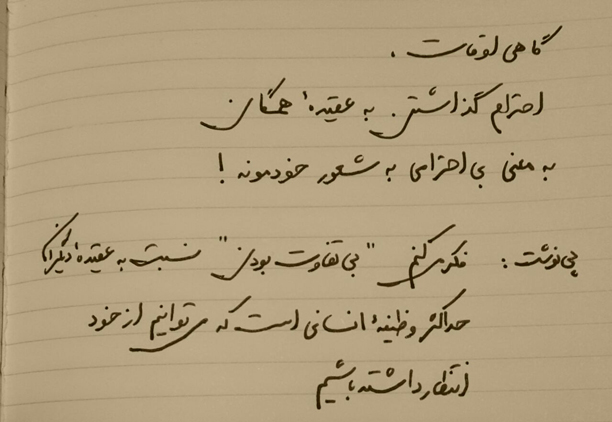 گاهی اوقات .
احترام گذاشتن به عقیدهٔ همگان
به معنی بی احترامی به شعور خودمونه !
پی نوشت : فکر می کنم "بی تفاوت بودن" نسبت به عقیدهٔ دیگران
حداکثر وظیفهٔ انسانی است که می توانیم از خود
انتظار داشته باشیم